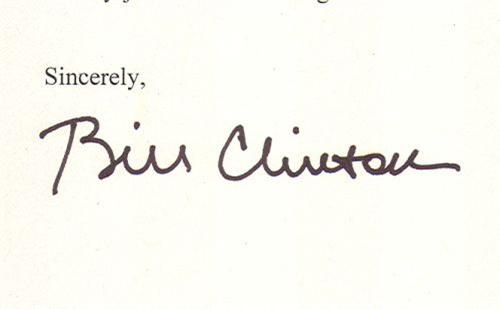 Sincerely,
Bill Clinton